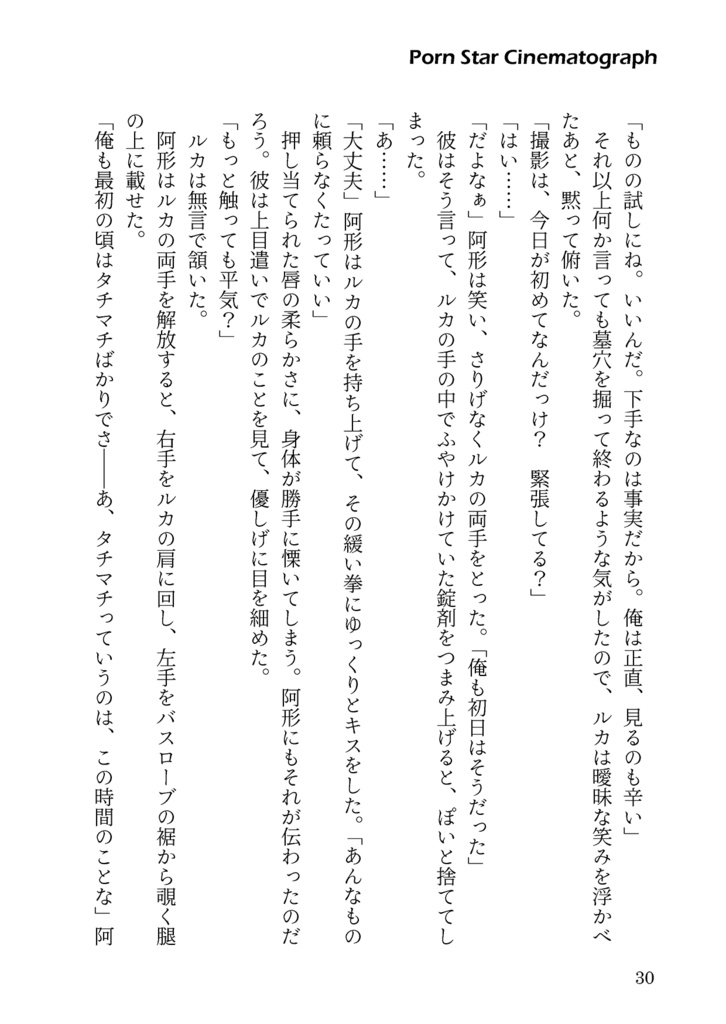 Porn Star Cinematograph
「ものの試しにね。いいんだ。下手なのは事実だから。俺は正直、見るのも辛い」
それ以上何か言っても墓穴を掘って終わるような気がしたので、ルカは曖昧な笑みを浮かべ
たあと、黙って俯いた。
「撮影は、今日が初めてなんだっけ？　緊張してる？」
「はい……」
「だよなぁ」阿形は笑い、さりげなくルカの両手をとった。「俺も初日はそうだった」
彼はそう言って、ルカの手の中でふやけかけていた錠剤をつまみ上げると、ぽいと捨ててし
まった。
「あ……」
「大丈夫」阿形はルカの手を持ち上げて、その緩い拳にゆっくりとキスをした。「あんなもの
に頼らなくたっていい」
押し当てられた唇の柔らかさに、身体が勝手に慄いてしまう。阿形にもそれが伝わったのだ
ろう。彼は上目遣いでルカのことを見て、優しげに目を細めた。
「もっと触っても平気？」
ルカは無言で頷いた。
阿形はルカの両手を解放すると、右手をルカの肩に回し、左手をバスローブの裾から覗く腿
の上に載せた。
「俺も最初の頃はタチマチばかりでさ――あ、タチマチっていうのは、この時間のことな」阿
30